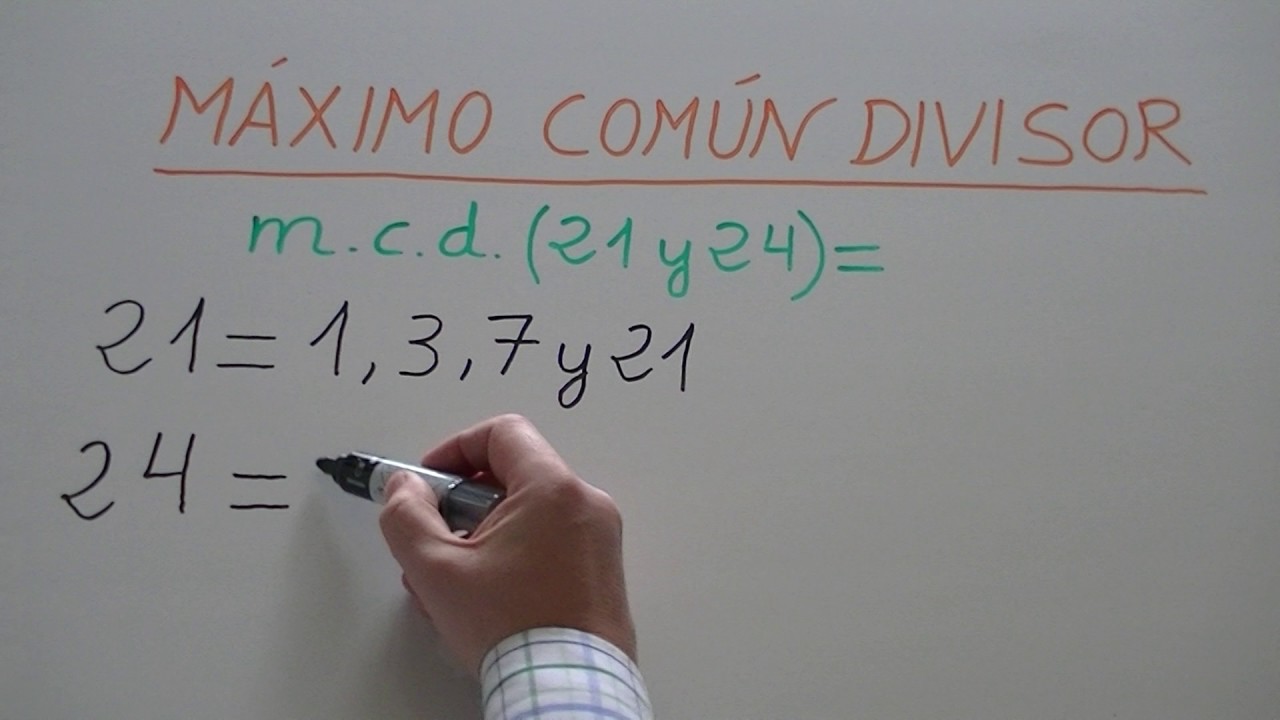 MÁXIMO COMÚN DIVISOR
m.c.d. (21 y 24) =
21 = 1, 3, 7 y 21
24 =